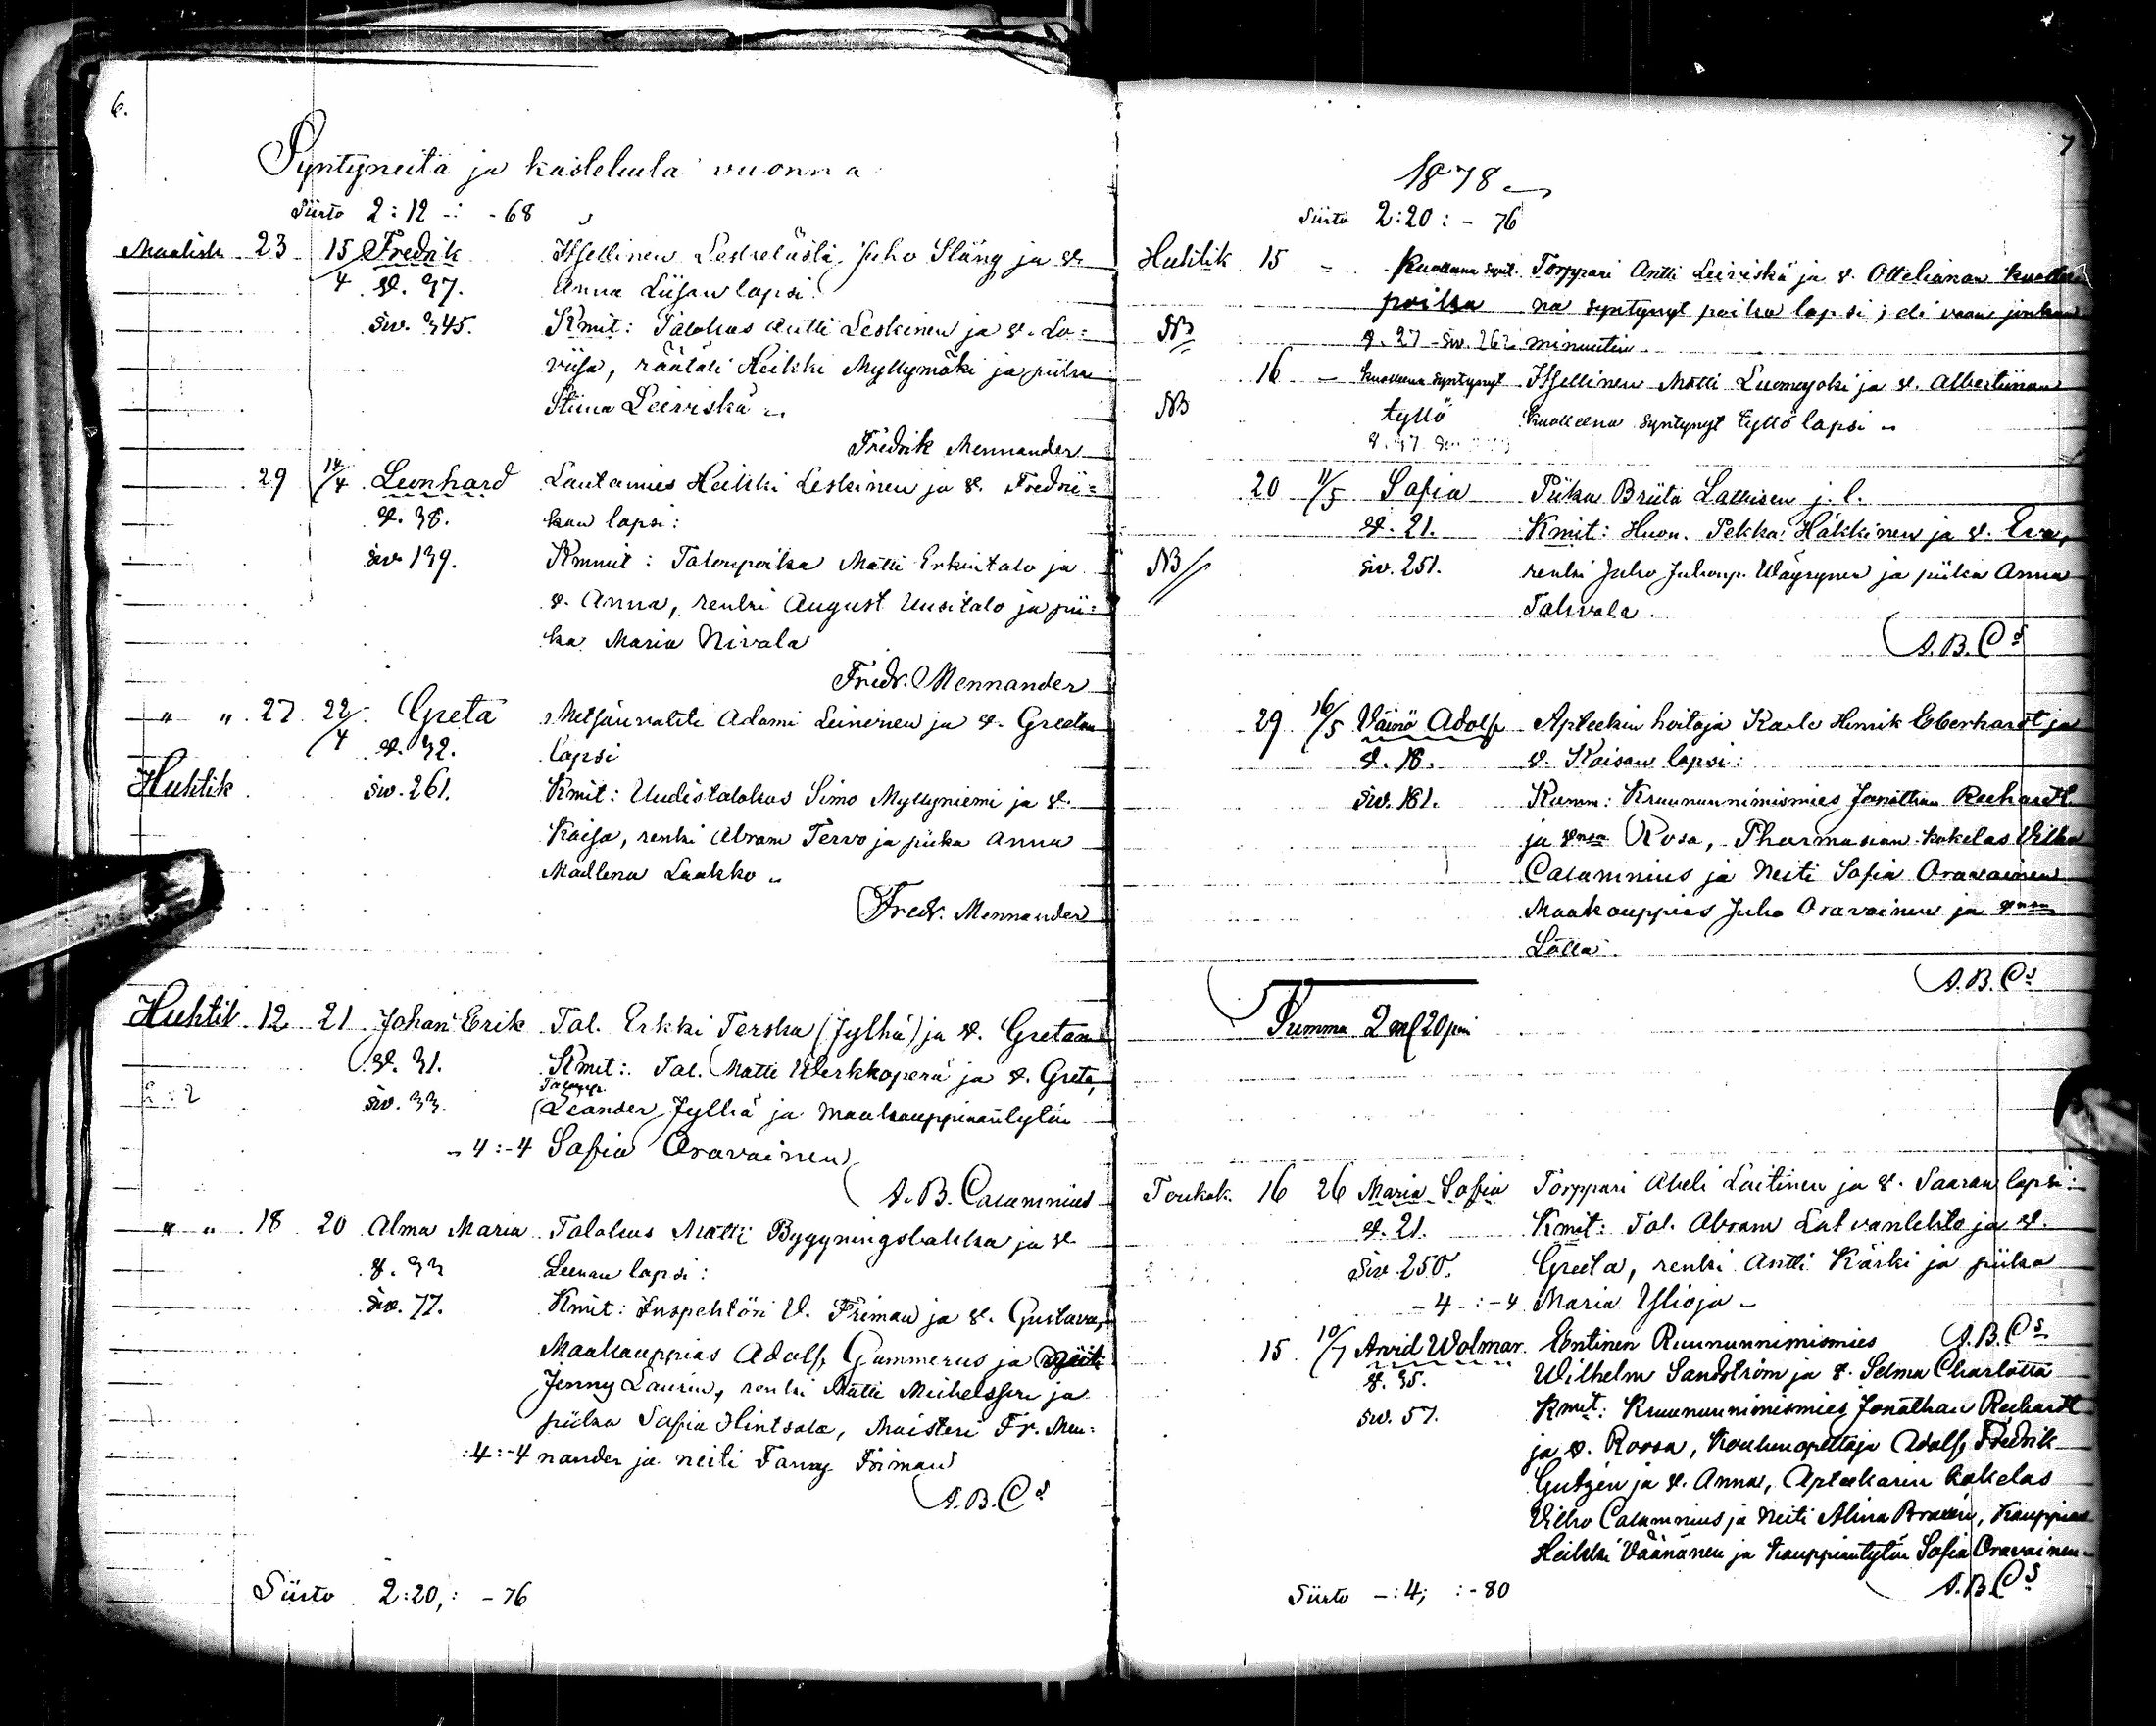 6.
Syntyneitä ja kastetuita vuonna
Siirto 2:12 -: -68
Maalisk 23 15/4 Fredrik Itsellinen Juho Stång ja v.
v. 37. Anna Liisan lapsi.
siv. 345. Kmit: Talokas Antti Leskinen ja v. Lo=
viisa, räätäli Heikki Myllymäki ja piika
Stiina Leiviskä „
Fredrik Mennander
29 14/4 Leonhard Lautamies Heikki Leskinen ja v. Fredrii=
v. 38. kan lapsi:
siv 139. Kmmit: Talonpoika Matti Erkintalo ja
v. Anna, renki August Uusitalo ja pii=
ka Maria Nivala
Fredr. Mennander
„ „ 27 22/4 Greta Metsänvahti Adami Leinonen ja v. Greetan
v. 32. lapsi
Huhtik siv. 261. Kmit: Uudistalokas Simo Myllyniemi ja v.
Kaisa, renki Abram Tervo ja piika Anna
Madlena Laakko „
Fredr. Mennander
Huhtik 12 21 Johan Erik Tal. Erkki Terska (Jylhä) ja v. Gretan
v. 31. Kmit: Tal. Matti Werkkoperä ja v. Greta,
Talonp.
siv. 33. Leander Jylhä ja maakauppiaantytär
- 4:-4 Safia Oravainen
A. B. Calamnius
„ „ 18 20 Alma Maria Talokas Matti Byggningsbakka ja v
v. 33 Leenan lapsi:
siv. 77. Kmit: Inspehtöri V. Friman ja v. Gustava,
Maakauppias Adolf Gummerus ja neiti
Jenny Laurin, renki Matti Mikelsson ja
piika Safia Hintsala, Maisteri Fr. Men=
:4:-4 nander ja neiti Fanny Friman
A. B. Cs
Siirto 2:20,: -76
7
1878
Siirto 2:20: - 76
Huhtik 15 - Kuollena synt. Torppari Antti Leiviskä ja v. Ottelianan kuolle
poika na syntynyt poika lapsi; eli vaan jonkun
NB v. 27 siv. 262 minuutin.
16 - kuollena syntynyt Itsellinen Matti Luomajoki ja v. Albertiinan
NB tyttö Kuolleena syntynyt tyttö lapsi „
v. 37
20 11/5 Safia Piika Briita Lallisen j. l.
v. 21. Kmit: Huon. Pekka Häkkinen ja v. Eva,
NB siv. 251. renki Juho Juhonp. Wäyrynen ja piika Anna
Tahvala.
A. B. Cs
29 16/5 Väinö Adolf Apteekin hoitaja Karlo Henrik Eberhardt ja
v. 18. v. Kaisan lapsi:
siv. 181. Kumm: Kruununnimismies Jonathan Rechardt
ja vnsa Rosa, Pharmasian kokelas Vilho
Calamnius ja Neiti Safia Oravainen
Maakauppias Juho Oravainen ja vnsa
Lotta.
A. B. Cs
Summa 2 mk 20 pni
Toukok. 16 26 Maria Sofia Torppari Abeli Laitinen ja v. Saaran lapsi:
v. 21. Kmit: Tal. Abram Latvanlehto ja v.
siv 250. Greeta, renki Antti Karki ja piika
- 4 -:-4 Maria Ylioja -
A. B. Cs
15 10/7 Arvid Wolmar Entinen Ruununnimismies
v. 35. Wilhelm Sandström ja v. Selma Charlotta
siv. 57. Kmit: Kruununnimismies Jonathan Rechardt
ja v. Roosa, Koulunopettaja Adolf Fredrik
ja v. Anna, Aptekarin kokelas
Vilho Calamnius ja Neiti Alina, Kauppias
Heikki Väänänen ja kauppiantytär Safia Oravainen -
A. B. Cs
Siirto -:4; :-80